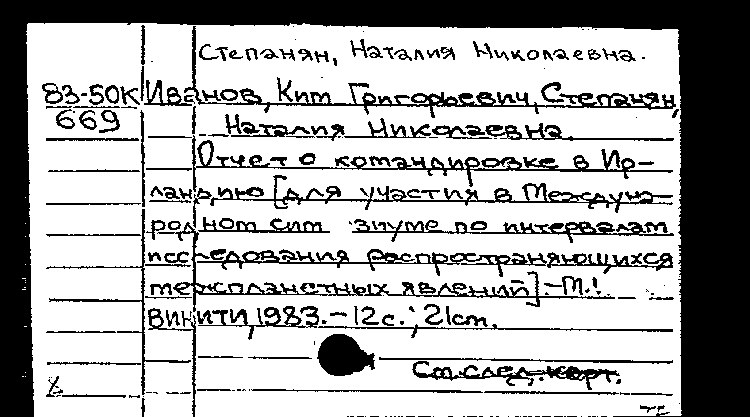 Степанян, Наталия Николаевна.
83-50К Иванов, Ким Григорьевич, Степанян,
669 Наталия Николаевна.
Отчет о командировке в Ир-
ландию [для участия в Междуна-
родном сим зиуме по интервалам
исследования распространяющихся
межпланетных явлений].-М.:
ВИНИТИ, 1983.-12с.; 21см.
См.след.карт.